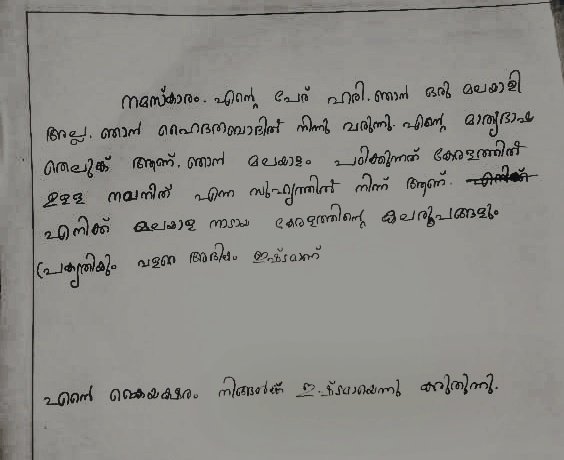 നമസ്കാരം. എന്റെ പേര് ഹരി. ഞാൻ ഒരു മലയാളി
അല്ല. ഞാൻ ഹൈദരബാദിൽ നിന്നു വരുന്നു. എന്റെ മാതൃഭാഷ
തെലുങ്ക് ആണ്. ഞാൻ മലയാളം പഠിക്കുന്നത് കേരളത്തിൽ
ഉള്ള നവനിത് എന്ന സുഹൃത്തിൽ നിന്ന് ആണ്.
എനിക്ക് മലയാള നാടായ കേരളത്തിന്റെ കലരൂപങ്ങളും
പ്രകൃതികും വളരെ ഇഷ്ടമാണ്
എന്റെ കൈയക്ഷരം നിങ്ങൾക്ക് ഇഷ്ടമായെന്നു കരുതുന്നു.